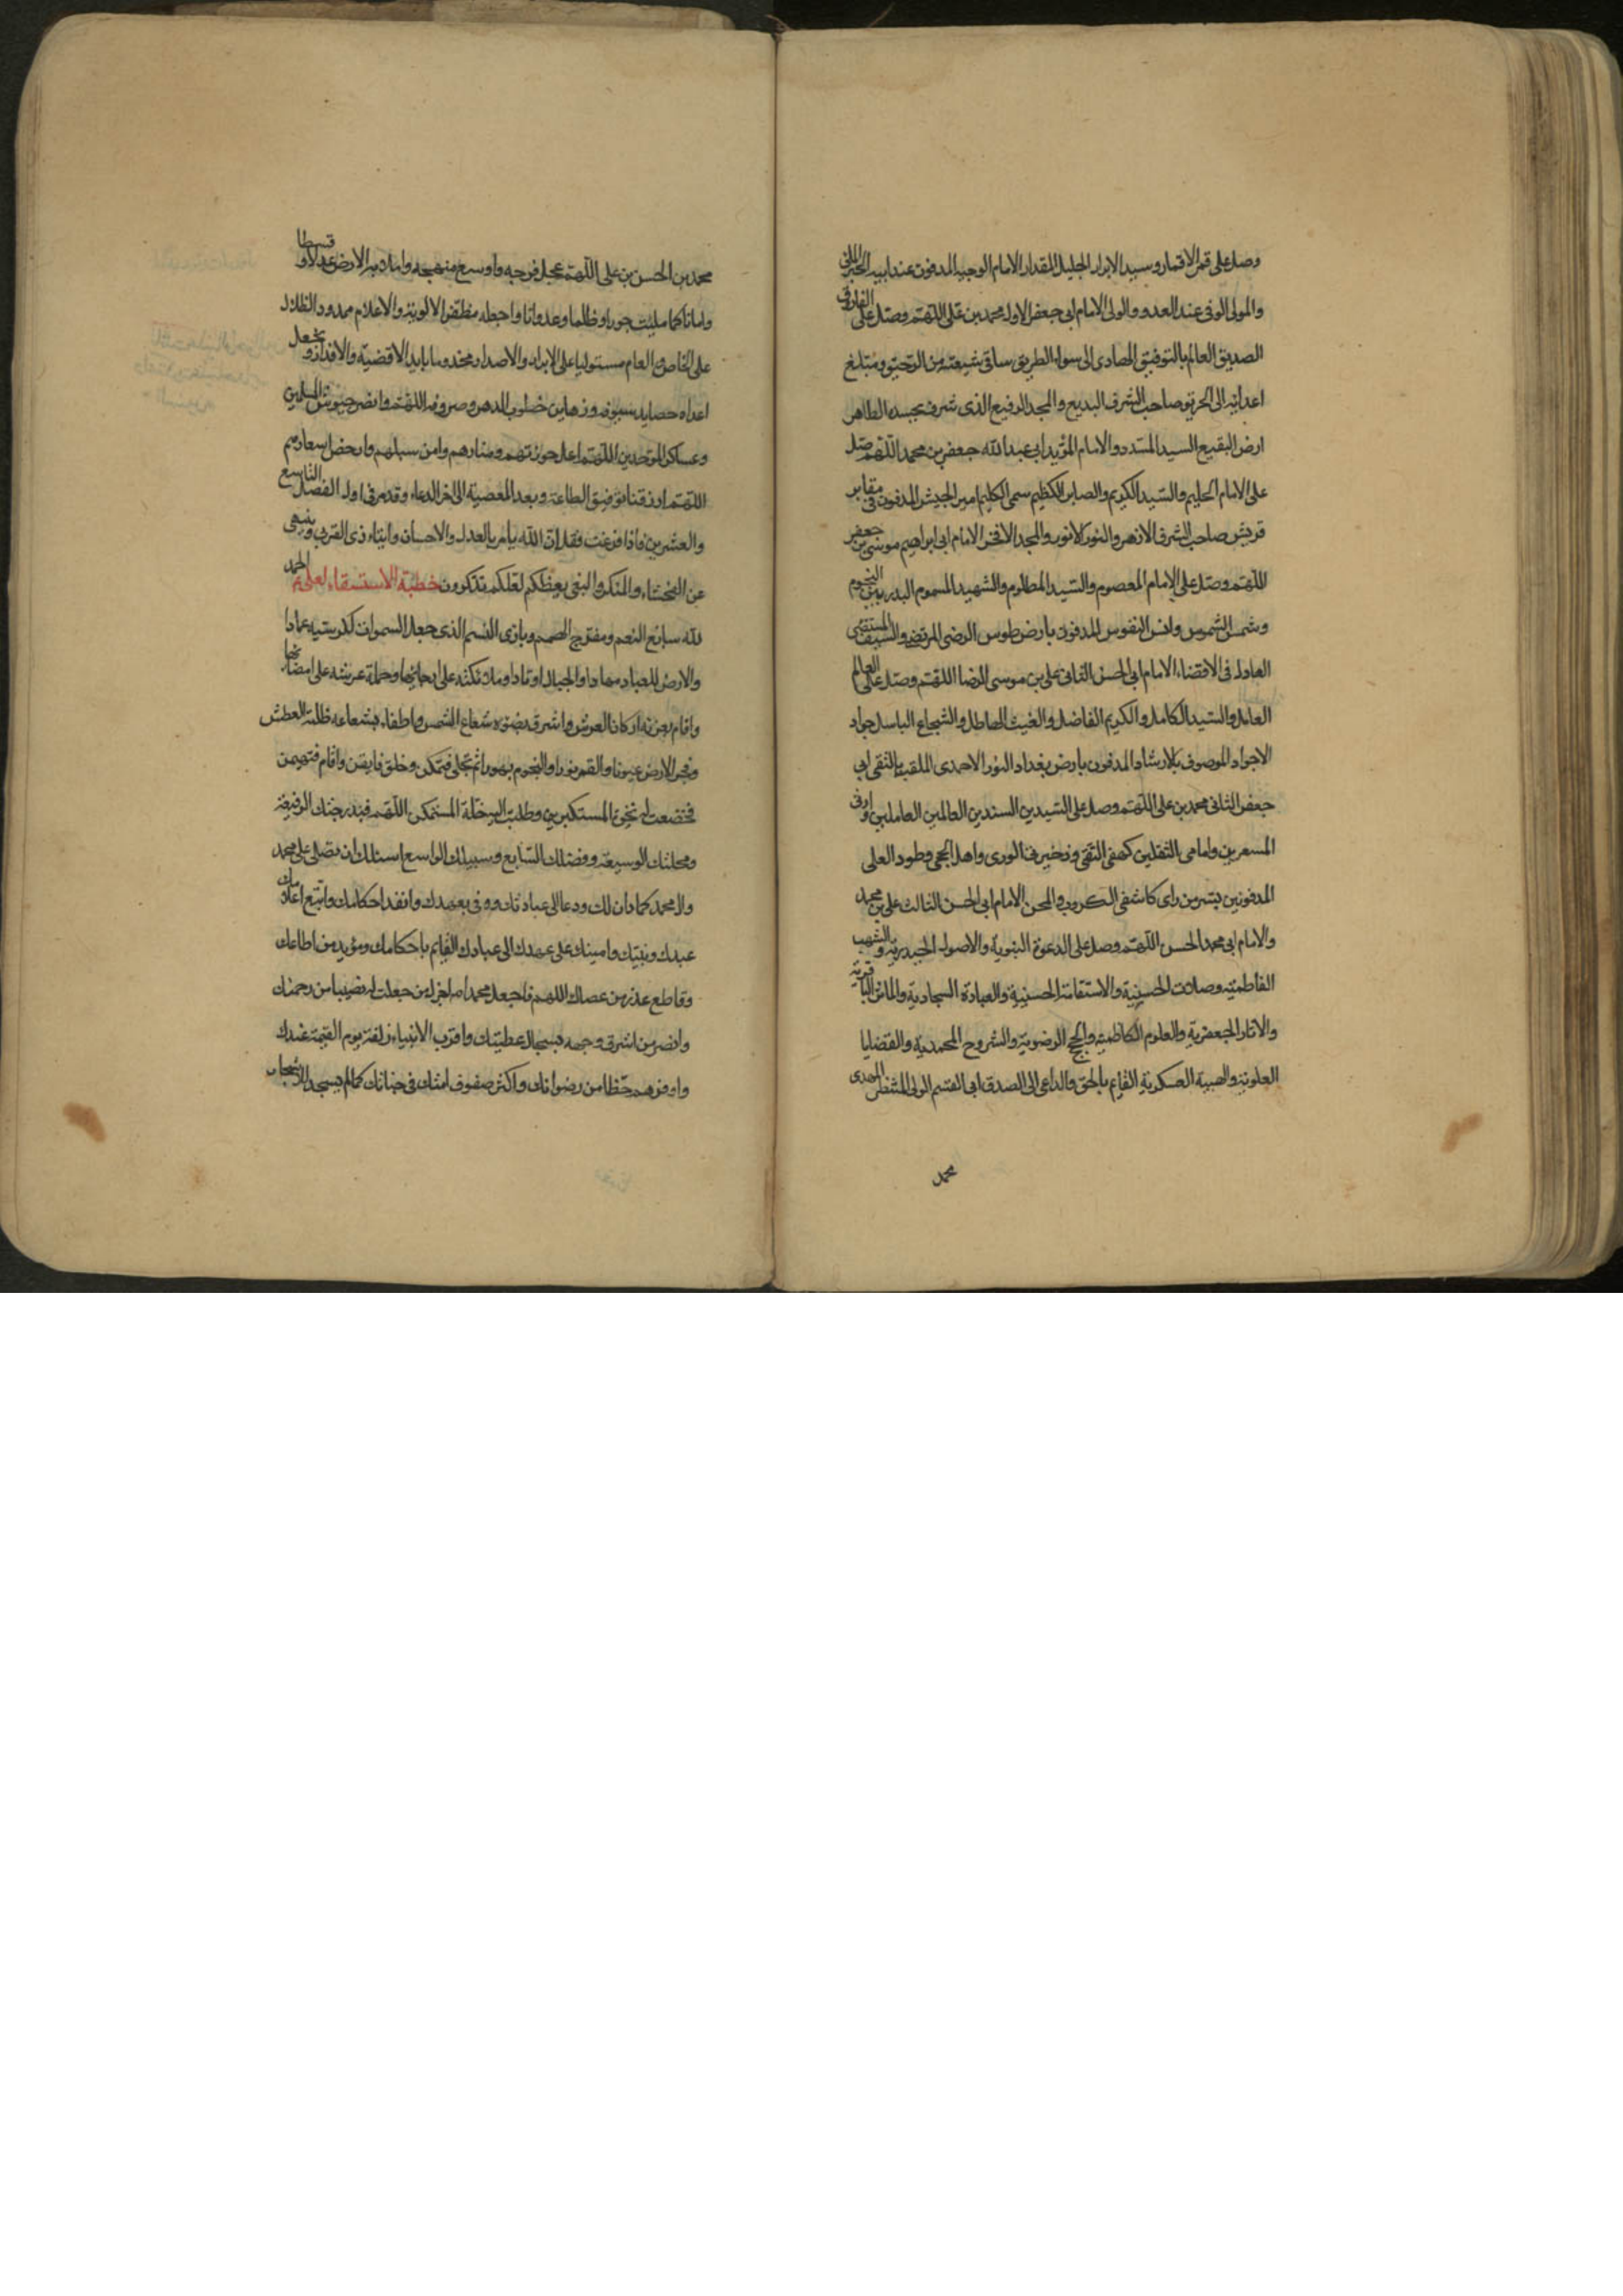 وصل على قمر الاقمار وسيد الابرار الجليل المقدار الامام الوجيه المدفون عند ابيه الحبر الملى
والمولى الوفى عند العدو والولى الامام ابى جعفر الاول محمد بن على اللهم وصل على الفاروق
الصديق العالم بالتوفيق الهادى الى سواء الطريق ساقى شيعته من الرحيق ومبلغ
اعدائه الى الحريق صاحب الشرف البديع والمجد الرفيع الذى شرف بجسده الطاهر
ارض البقيع السيد المسدد والامام المؤيد ابى عبد الله جعفر بن محمد اللهم صل
على الامام الحليم والسيد الكريم والصابر الكظيم سمى الكليم امير الجيش المدفون فى مقابر
قريش صاحب الشرف الازهر والنور الانور والمجد الافخر الامام ابى ابراهيم موسى بن جعفر
اللهم وصل على الامام المعصوم والسيد المظلوم والشهيد المسموم البدر بين النجوم
وشمس الشموس وانس النفوس المدفون بارض طوس الرضى المرتضى والسيف المنتضى
العادل فى الاقضاء الامام ابى الحسن الثانى على بن موسى الرضا اللهم وصل على العالم
العامل والسيد الكامل والكريم الفاضل والغيث الهاطل والشجاع الباسل جواد
الاجواد الموصوف بالارشاد المدفون بارض بغداد النور الاحمدى الملقب بالتقى ابى
جعفر الثانى محمد بن على اللهم وصل على السيدين السندين العالمين العاملين
وامامى الثقلين كهفى التقى وذخيرتى الورى واهل الحجى وطود العلى
المدفونين بسر من راى كاشفى الكروب والمحن الامام ابى الحسن الثالث على بن محمد
والامام ابى محمد الحسن اللهم وصل على الدعوة النبوية والاصول الحيدرية والشهب
الفاطمية وصلات الحسنية والاستقامة الحسينية والعبادة السجادية والماثر الباقرية
والاثار الجعفرية والعلوم الكاظمية والحجج الرضوية والشروح المحمدية والقضايا
العلوية والهيبة العسكرية القايم بالحق والداعى الى الصدق ابى القسم الولى المنتظر المهدى
محمد
محمد بن الحسن بن على اللهم عجل فرجه واوسع منهجه واملا به الارض عدلا وقسطا
وامانا كما مليت جورا وظلما وعدوانا واجعله مظفر الالوية والاعلام ممدود الظلال
على الخاص والعام مستوليا على الايراد والاصدار مخدوما بايد الاقضية والاقدار وتجعل
اعداه حصايد سيوفه ورهاين خطوب الدهر وصروفه اللهم وانصر جيوش المسلمين
وعساكر الموحدين اللهم اعل حوزتهم ومنارهم وامن سبلهم وارخص اسعارهم
اللهم ارزقنا توفيق الطاعة وبعد المعصية الى اخر الدعاء وقد مر فى اول الفصل التاسع
والعشرين فاذا فرغت فقل ان الله يامر بالعدل والاحسان وايتاء ذى القربى وينهى
عن الفحشاء والمنكر والبغى يعظكم لعلكم تذكرون خطبة الاستسقاء لعلى ع الحمد
لله سابغ النعم ومفرج الهمم وبارئ النسم الذى جعل السموات لكرسيه عمادا
والارض للعباد مهادا والجبال اوتادا وملائكته على ارجائها وحملة عرشه على امضائها
واقام بعزته اركان العرش واشرق بضوءه شعاع الشمس واطفاء بشعاعه ظلمة العطش
وفجر الارض عيونا والقمر نورا والنجوم بهورا ثم تجلى فتمكن وخلق فايقن واقام فتهيمن
فخضعت له نخوة المستكبرين وطلبت اليه خلة المتمكن اللهم فبدرجتك الرفيعة
ومحلتك الوسيعة وفضلك السابغ وسبيلك الواسع اسئلك ان تصلى على محمد
وال محمد كما دان لك ودعا الى عبادتك ووفى بعهدك وانفذ احكامك واتبع اعلامك
عبدك ونبيك وامينك على عهدك الى عبادك القايم باحكامك ومؤيد من اطاعك
وقاطع عذر من عصاك اللهم فاجعل محمدا اجزل من جعلت له نصيبا من رحمتك
وانضر من اشرق وجهه بسجال عطيتك واقرب الانبياء زلفة يوم القيمة عندك
واوفرهم حظا من رضوانك واكثرهم صفوف امة فى جنانك كما لم يسجد للاحجار